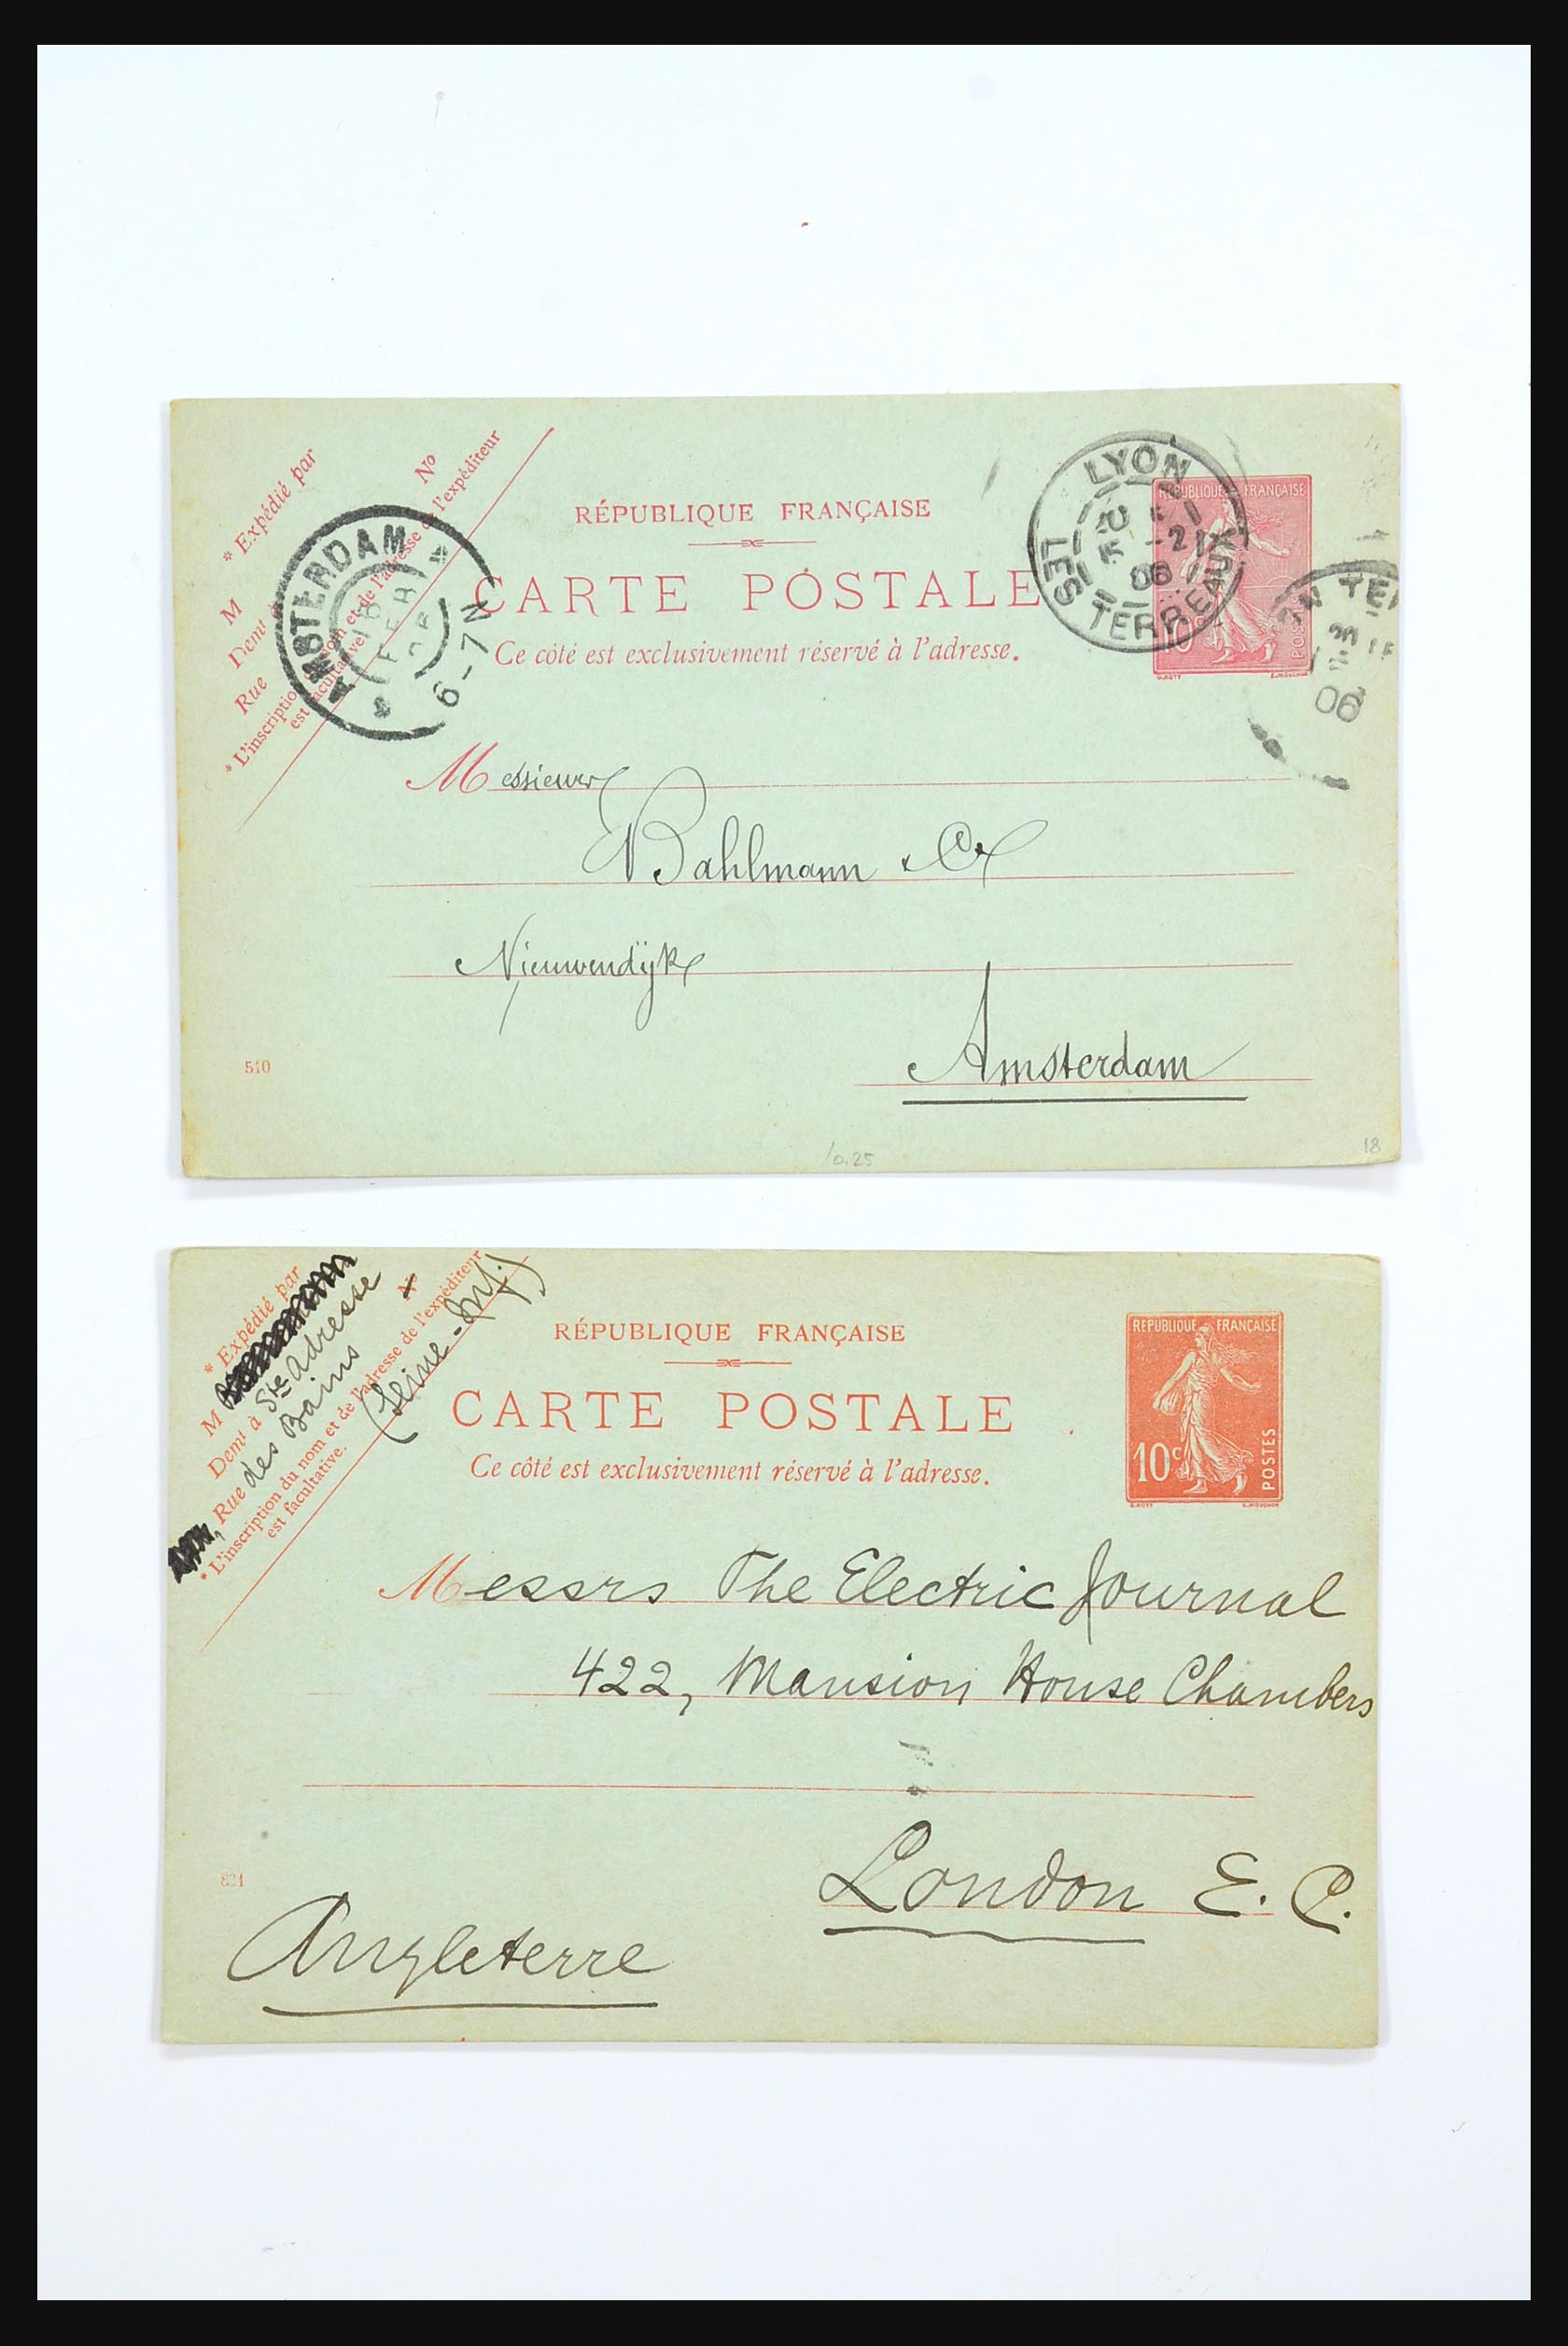 * Expédié par
M
Demt
Rue
No
* L'inscription du nom et de l'adresse de l'expéditeur
est facultative
AMSTERDAM
FEB
6-7N
RÉPUBLIQUE FRANÇAISE
CARTE POSTALE
Ce côté est exclusivement réservé à l'adresse.
LYON
-2
06
LES TERREAUX
RÉPUBLIQUE FRANÇAISE
10c
POSTES
O.ROTY E.MOUCHON
06
Messieurs
Bahlmann & Co
Nieuwendÿk
Amsterdam
510
/0,25
18
* Expédié par
M
Demt à Ste Adresse
Rue des Bains
No
(Seine-Inf.)
* L'inscription du nom et de l'adresse de l'expéditeur
est facultative.
RÉPUBLIQUE FRANÇAISE
CARTE POSTALE
Ce côté est exclusivement réservé à l'adresse.
REPUBLIQUE FRANÇAISE
10c
POSTES
O.ROTY E.MOUCHON
Messrs The Electric Journal
422, Mansion House Chambers
London E. C.
821
Angleterre